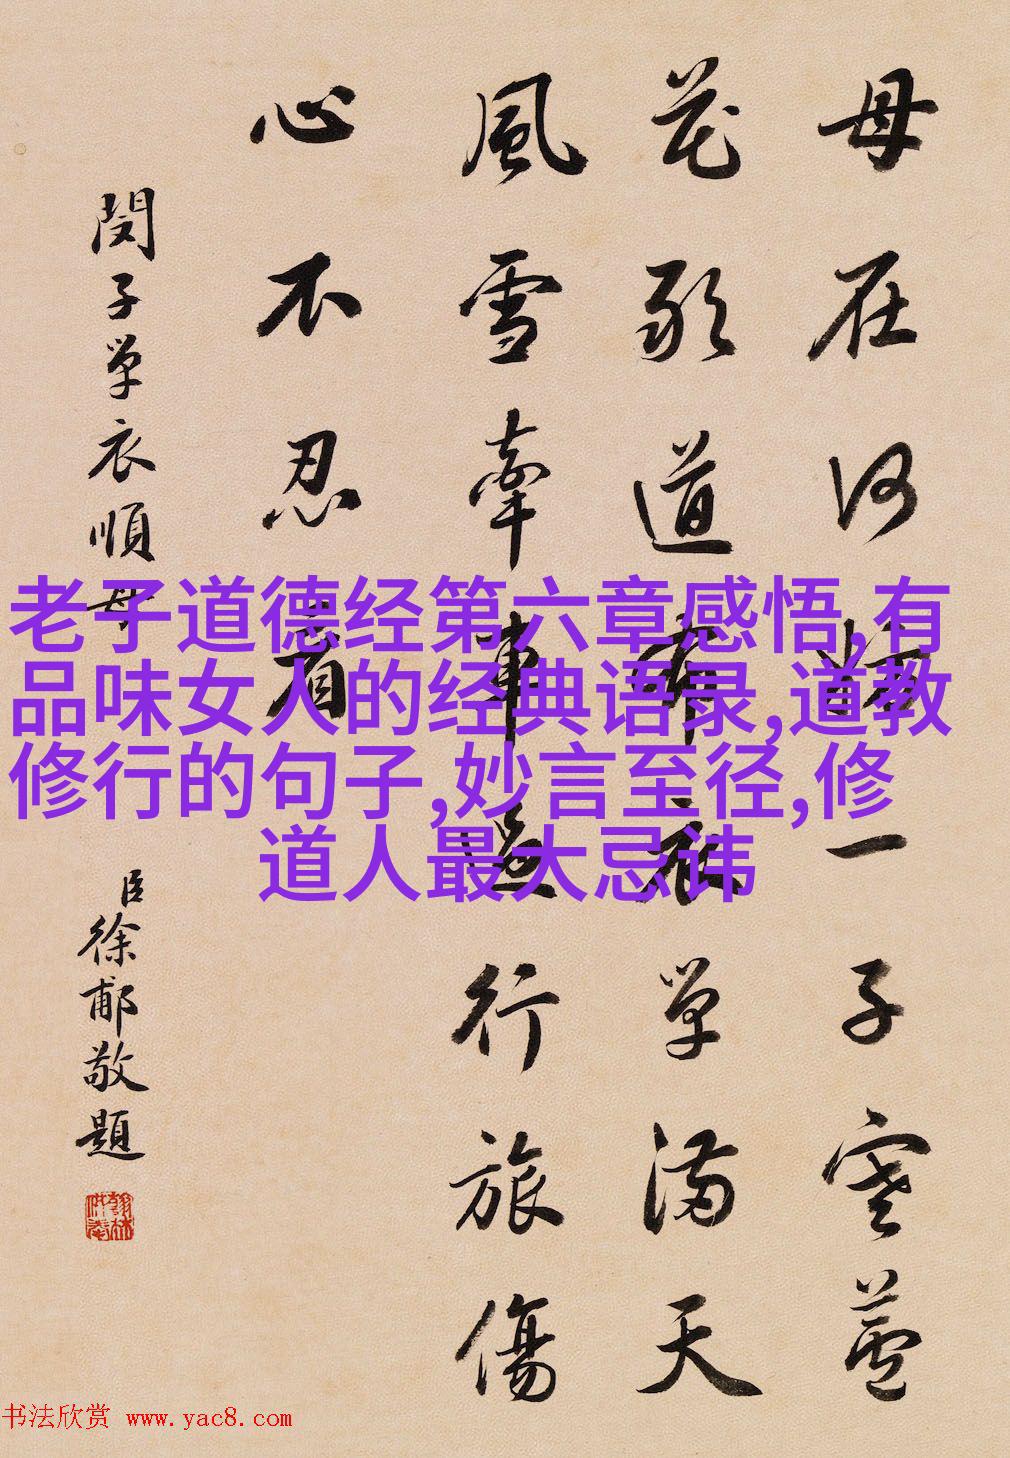 母在何一子寒蘆
花道布衣單滿天
風雪牽車行旅傷
心不忍看
閔子單衣順母
臣徐郙敬題
老子道德经第六章感悟,有
品味女人的经典语录,道教
修行的句子,妙言至径,修
道人最大忌讳
书法欣赏 www.yac8.com